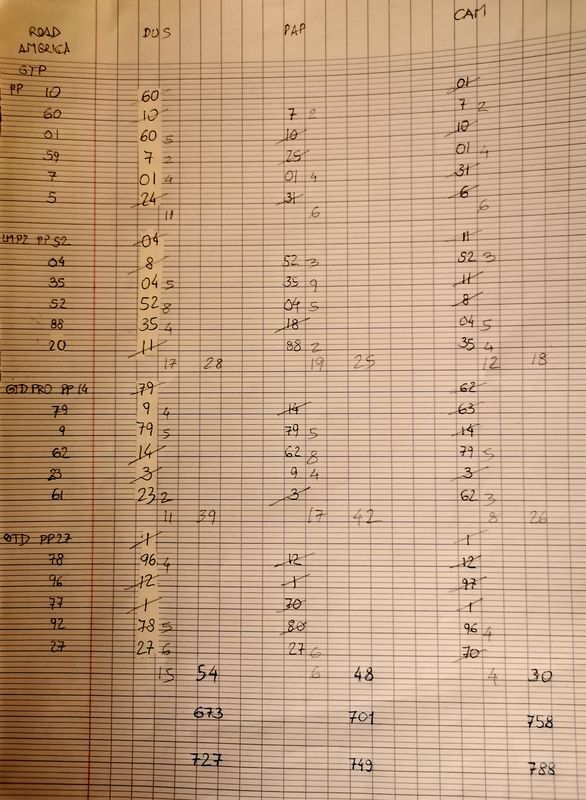 CAM
ROAD DUS PAP
AMERICA
GTP
PP 10 60 01
60 10 7 2 7 2
01 60 5 10 10
59 7 2 25 01 4
7 01 4 01 4 31
5 24 31 6
11 6 6
LMP2 PP 52 04 11
04 8 52 3 52 3
35 04 5 35 9 11
52 52 8 04 5 8
88 35 4 18 04 5
20 11 88 2 35 4
17 28 19 25 12 18
GTD PRO PP 14 79 62
79 9 4 14 63
9 79 5 79 5 14
62 14 62 8 79 5
23 3 9 4 3
61 23 2 3 62 3
11 39 17 42 8 26
GTD PP27 1 1
78 96 4 12 12
96 12 1 97
77 1 70 1
92 78 5 80 96 4
27 27 6 27 6 70
15 54 6 48 4 30
673 701 758
727 749 788